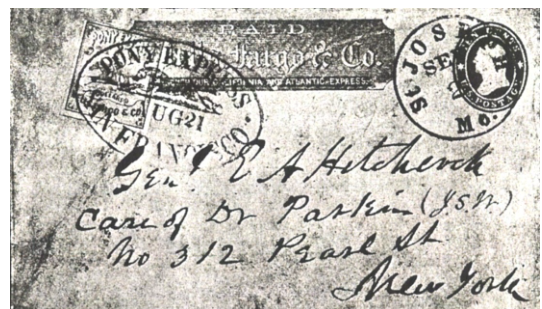 PAID
PONY EXPRESS
Fargo & Co.
OUR CALIFORNIA AND ATLANTIC EXPRESS.
PONY EXPRESS
AUG 21
SAN FRANCISCO
ST. JOSEPH
SE
Mo.
POSTAGE
Gen'l E A Hitchcock
Care of Dr Parkin
No 312 Pearl St
New York